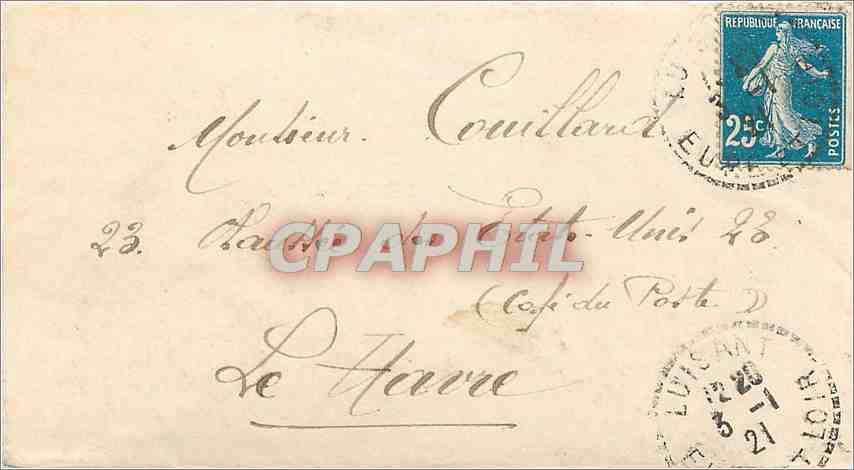 REPUBLIQUE FRANÇAISE
25c
POSTES
LU
EURE
Monsieur. Couillard
23. Chaussée des Etats-Unis 23
CPAPHIL
(Café du Poste)
Le Havre
LUISANT
12 20
3 -1
21
E T LOIR